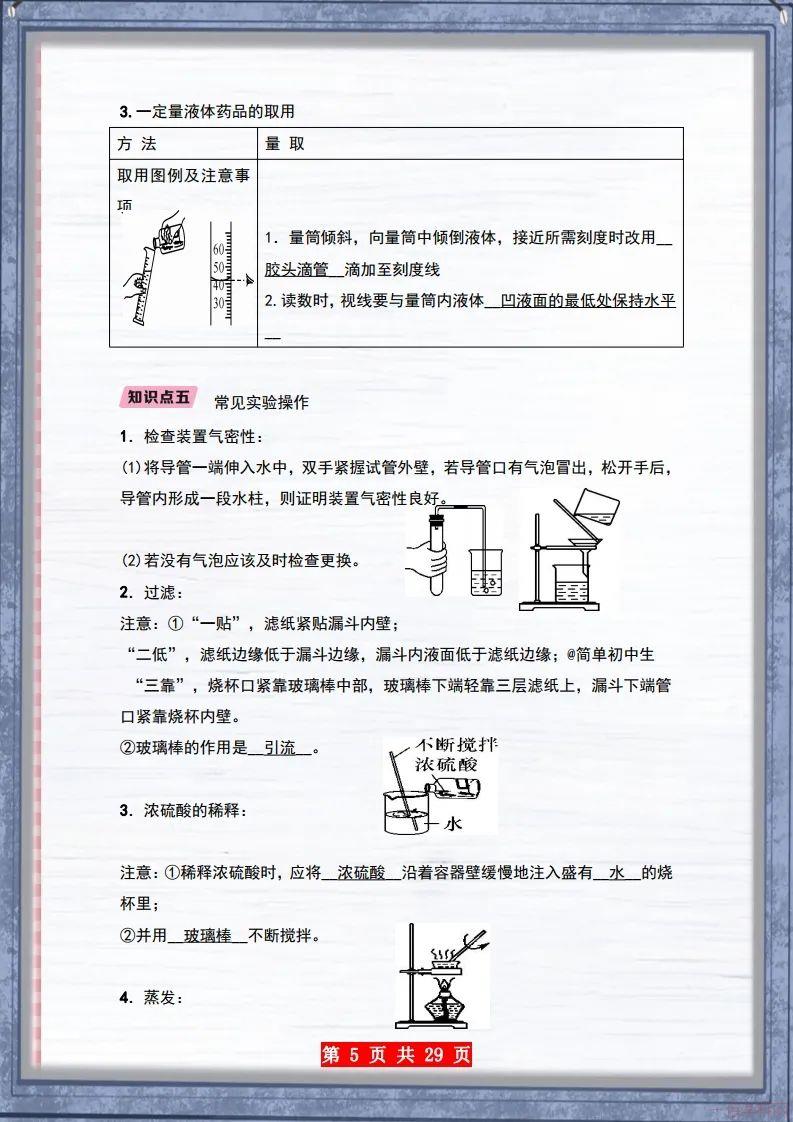 3.一定量液体药品的取用
方 法
量 取
取用图例及注意事
项
60
50
40
30
1. 量筒倾斜，向量筒中倾倒液体，接近所需刻度时改用__
胶头滴管__滴加至刻度线
2.读数时，视线要与量筒内液体__凹液面的最低处保持水平
__
知识点五 常见实验操作
1. 检查装置气密性：
(1)将导管一端伸入水中，双手紧握试管外壁，若导管口有气泡冒出，松开手后，
导管内形成一段水柱，则证明装置气密性良好。
(2)若没有气泡应该及时检查更换。
2. 过滤：
注意：①“一贴”，滤纸紧贴漏斗内壁；
“二低”，滤纸边缘低于漏斗边缘，漏斗内液面低于滤纸边缘；@简单初中生
“三靠”，烧杯口紧靠玻璃棒中部，玻璃棒下端轻靠三层滤纸上，漏斗下端管
口紧靠烧杯内壁。
②玻璃棒的作用是__引流__。
不断搅拌
浓硫酸
水
3. 浓硫酸的稀释：
注意：①稀释浓硫酸时，应将__浓硫酸__沿着容器壁缓慢地注入盛有__水__的烧
杯里；
②并用__玻璃棒__不断搅拌。
4. 蒸发：
第 5 页 共 29 页